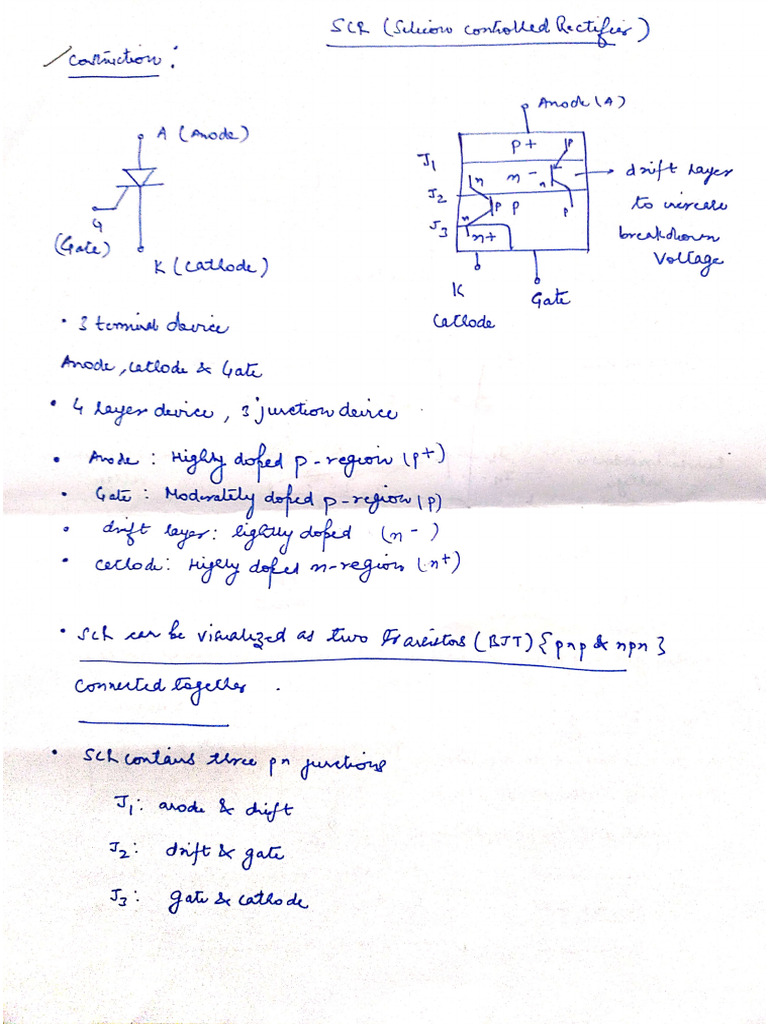 SCR (Silicon Controlled Rectifier)
Construction :
A (Anode)
G
(Gate)
K (Cathode)
Anode (A)
J1
J2
J3
p+
n-
p
n+
p
n
p
n
p
n
drift layer
to increase
breakdown
Voltage
K
Cathode
Gate
• 3 terminal device
Anode, cathode & Gate
• 4 layer device, 3 junction device
• Anode : Highly doped p-region (p+)
• Gate : Moderately doped p-region (p)
• drift layer: lightly doped (n-)
• cathode: Highly doped n-region (n+)
• SCR can be visualized as two transistors (BJT) {pnp & npn}
connected together.
• SCR contains three pn junctions
J1: anode & drift
J2: drift & gate
J3: gate & cathode